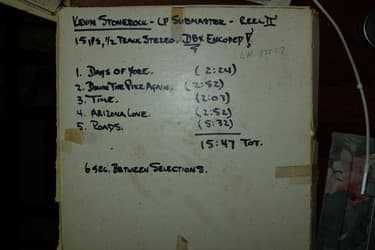 Kevin Stonerock - LP Submaster - Reel II
15 ips, 1/2 Track Stereo. DBX Encoded!
1. Days of Yore. (2:24)
2. Down The Pike Again. (2:52)
3. Time. (2:07)
4. Arizona Love. (2:52)
5. Roads. (5:32)
15:47 Tot.
6 sec. Between Selections.